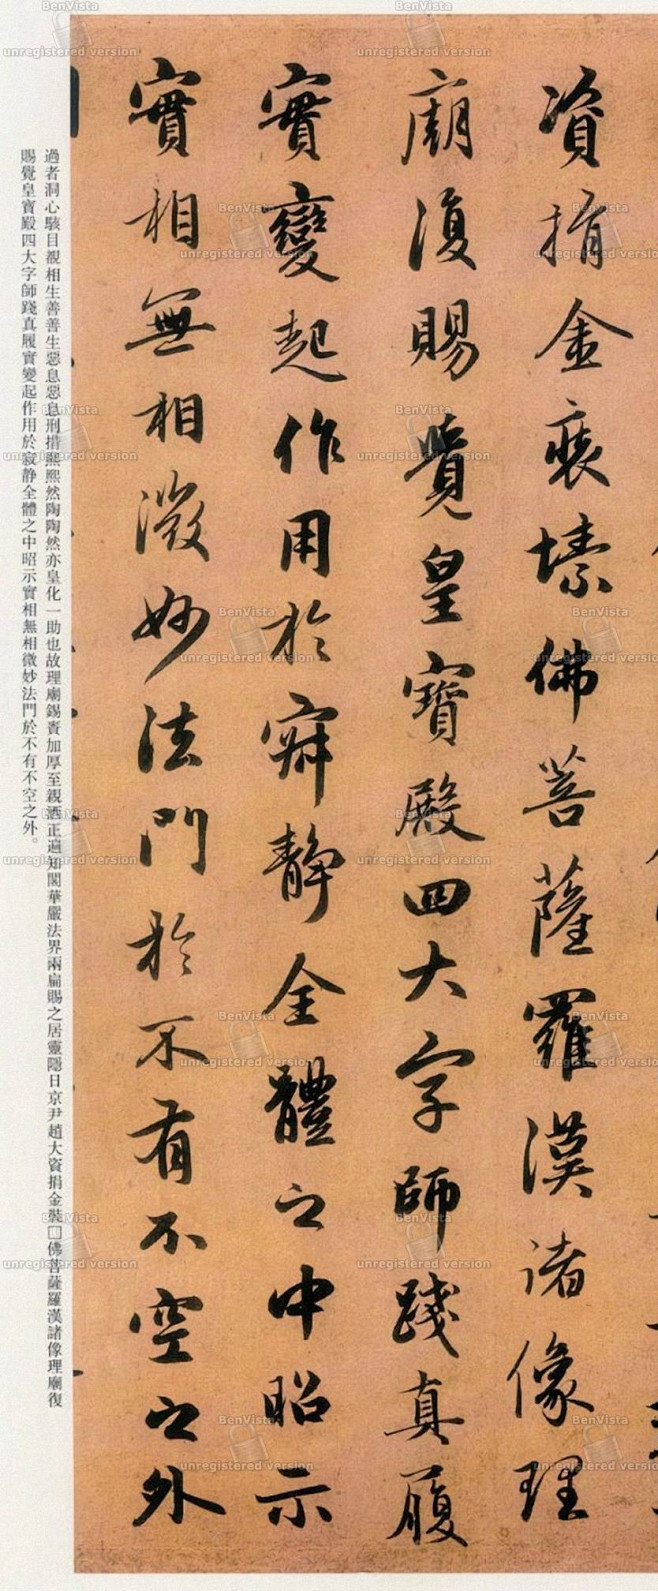 資捐金裝塐佛菩薩羅漢諸像理
廟復賜覺皇寶殿四大字師踐真履
實變起作用於寂靜全體之中昭示
實相無相微妙法門於不有不空之外
過者洞心駭目覩相生善善生惡息惡息刑措熙熙然陶陶然亦皇化一助也故理廟錫賚加厚至親洒正遍知閣華嚴法界兩扁賜之居靈隱日京尹趙大資捐金裝□佛菩薩羅漢諸像理廟復
賜覺皇寶殿四大字師踐真履實變起作用於寂静全體之中昭示實相無相微妙法門於不有不空之外。
BenVista
unregistered version